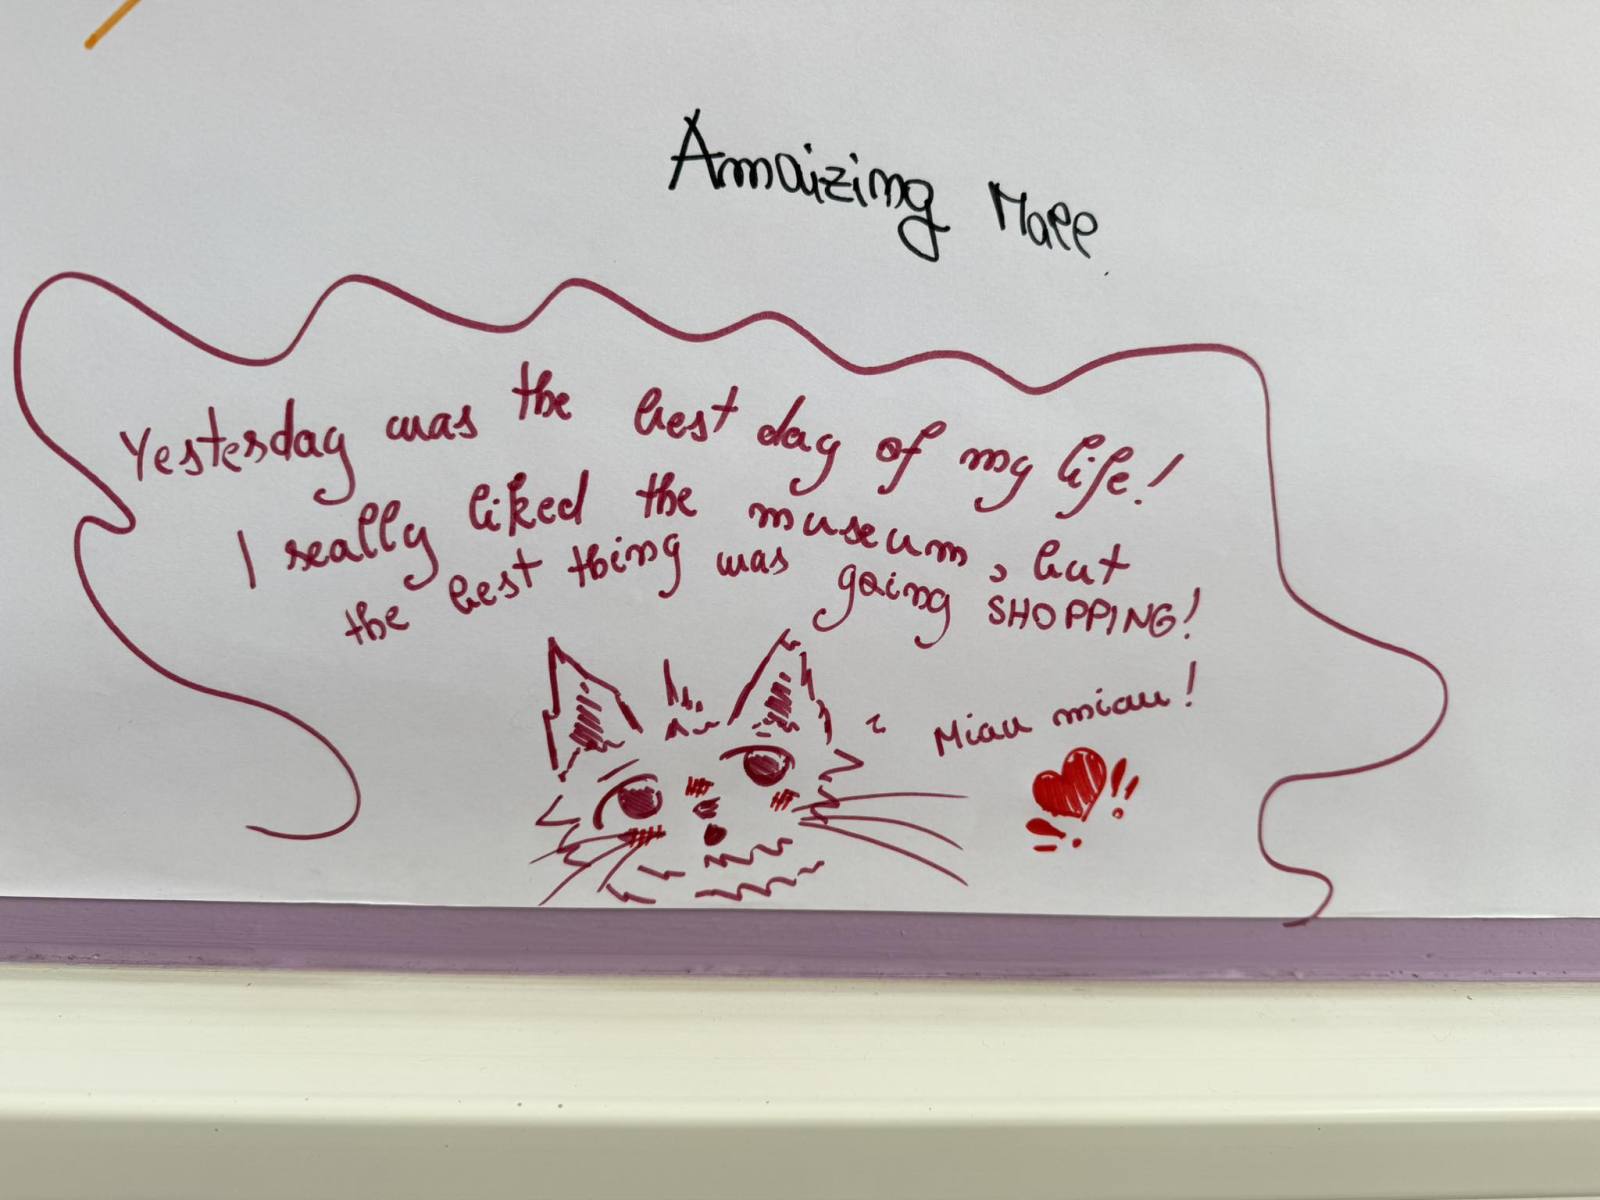 Amaizing Mall
Yesterday was the best day of my life!
I really liked the museum, but
the best thing was going SHOPPING!
Miau miau!